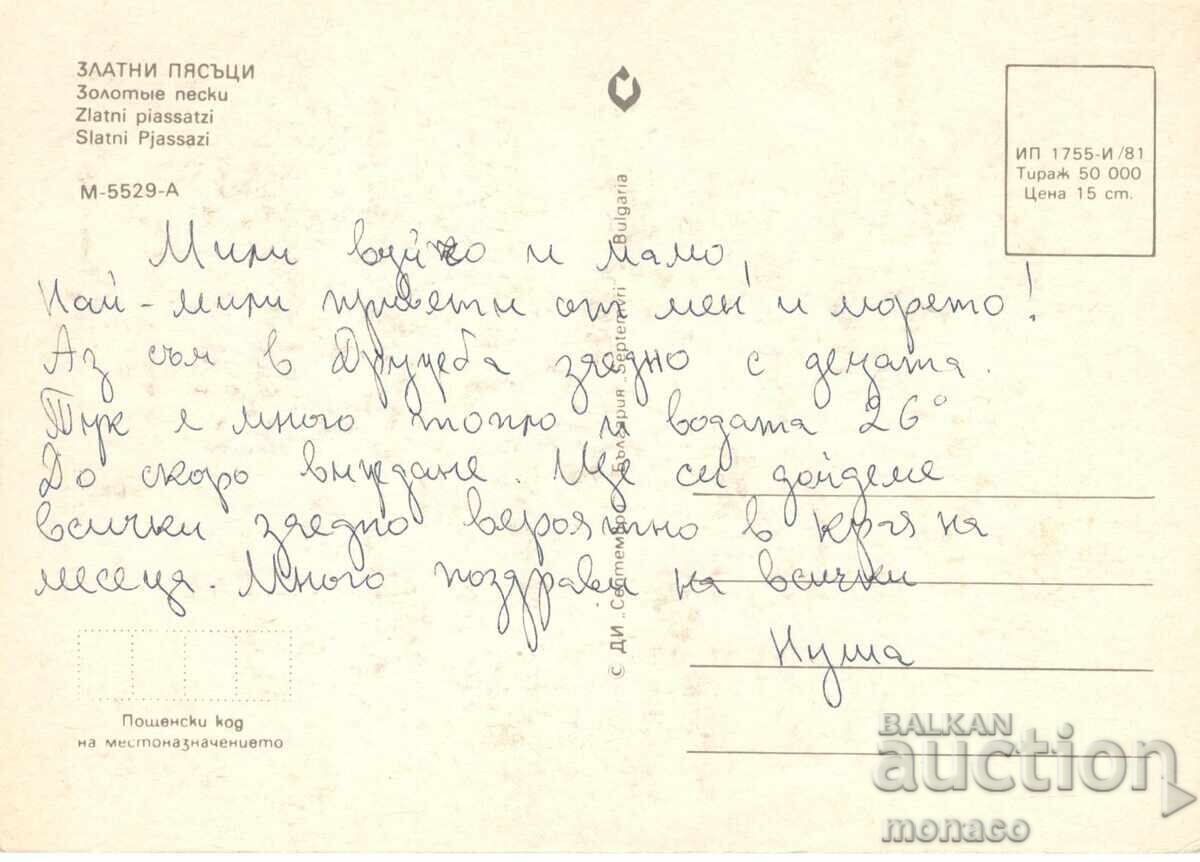 ЗЛАТНИ ПЯСЪЦИ
Золотые пески
Zlatni piassatzi
Slatni Pjassazi
М-5529-А
ИП 1755-И/81
Тираж 50 000
Цена 15 ст.
Мили вуйчо и мамо,
Най-мили привети от мен и морето!
Аз съм в Дружба заедно с децата.
Тук е много топло и водата 26°
До скоро виждане. Ще си дойдеме
всички заедно вероятно в края на
месеца. Много поздрави на всички
Нуша
© ДИ „Септември" България „Septemvri" Bulgaria
Пощенски код
на местоназначението
BALKAN
auction
monaco